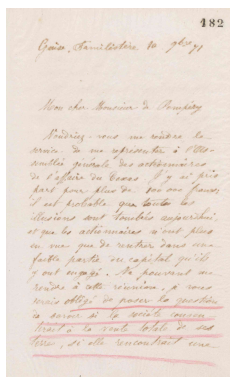 182
Guise, Familistère 10 9bre 71
Mon cher Monsieur de Pompéry
Voudriez-vous me rendre le
service de me représenter à l'As-
semblée générale des actionnaires
de l'affaire du Texas. J'y ai pris
part pour plus de 100 000 francs;
il est probable que toutes les
illusions sont tombées aujourd'hui,
et que les actionnaires n'ont plus
en vue que de rentrer dans une
faible partie du capital qu'ils
y ont engagé. Ne pouvant me
rendre à cette réunion, je vous
serais obligé de poser la question
de savoir si la société consen-
tirait à la vente totale de ses
terres, si elle rencontrait une